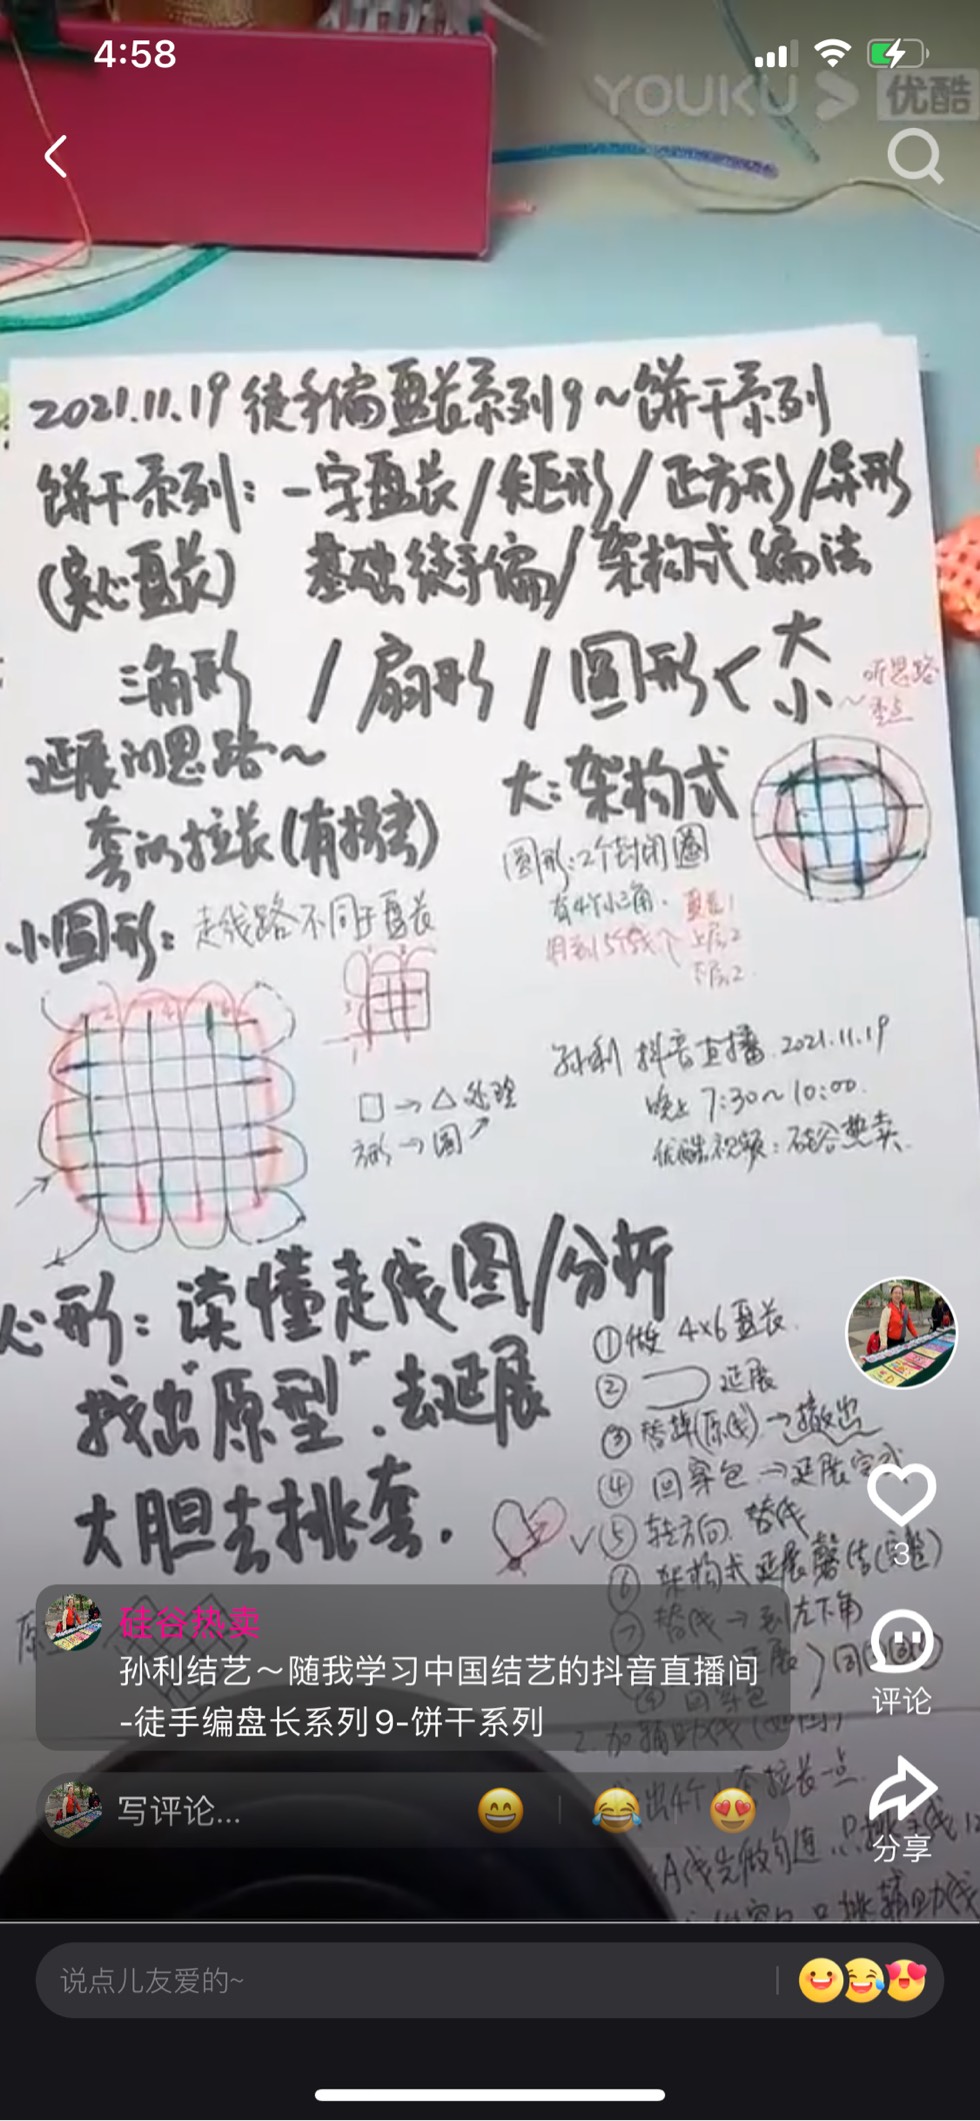 4:58
YOUKU 优酷
2021.11.19 徒手编盘长系列9～饼干系列
饼干系列：一字盘长/矩形/正方形/异形
(实心盘长) 基础徒手编/架构式编法
三角形 / 扇形 / 圆形 < 大
小
听思路
～重点
延展的思路～
套的拉长(有接套)
大：架构式
圆形：2个封闭圈
有4个小三角.
小圆形：走线路不同于盘长
上层2
下层2
孙利 抖音直播 2021.11.19
晚上 7:30～10:00.
优酷视频：硅谷热卖.
□→△处理
方形→圆
心形：读懂走线图/分析
找出"原型".去延展
大胆去挑套.
①做 4×6盘长.
② 延展
③替掉(原线)→撤出
④回穿包→延展完成
⑤转方向 替线
⑥架构式延展磬结(完整)
⑦替线→到左下角
3
硅谷热卖
孙利结艺～随我学习中国结艺的抖音直播间
-徒手编盘长系列9-饼干系列
评论
写评论...
分享
说点儿友爱的~